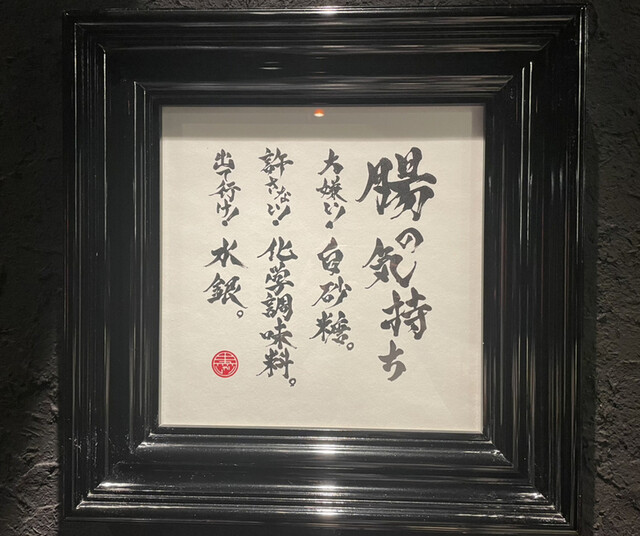 腸の気持ち
大嫌い！白砂糖。
許さない！化学調味料。
出て行け！水銀。